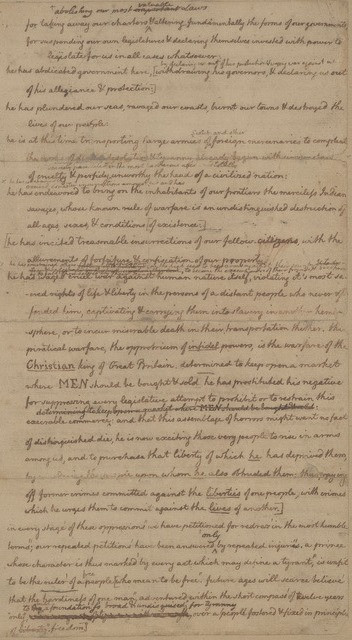 abolishing our most important laws
valuable
for taking away our charters & altering fundamentally the forms of our governments
for suspending our own legislatures & declaring themselves invested with power to
legislate for us in all cases whatsoever
he has abdicated government here, [withdrawing his governors, & declaring us out
of his allegiance & protection:]
he has plundered our seas, ravaged our coasts, burnt our towns & destroyed the
lives of our people:
he is at this time transporting large armies of foreign mercenaries to compleat
the works of death desolation & tyranny already begun with circumstances
of cruelty & perfidy unworthy the head of a civilized nation:
he has endeavored to bring on the inhabitants of our frontiers the merciless Indian
savages, whose known rule of warfare is an undistinguished destruction of
all ages, sexes, & conditions [of existence:]
[he has incited treasonable insurrections of our fellow citizens with the
allurements of forfeiture & confiscation of our property:
he has waged cruel war against human nature itself, violating it's most sa-
-cred rights of life & liberty in the persons of a distant people who never of-
fended him, captivating & carrying them into slavery in another hemi-
sphere, or to incur miserable death in their transportation thither. this
piratical warfare, the opprobrium of infidel powers, is the warfare of the
Christian king of Great Britain. determined to keep open a market
where MEN should be bought & sold he has prostituted his negative
for suppressing every legislative attempt to prohibit or to restrain this
determining to keep open a market where MEN should be bought & sold:
execrable commerce: and that this assemblage of horrors might want no fact
of distinguished die, he is now exciting those very people to rise in arms
among us, and to purchase that liberty of which he has deprived them,
by murdering the people upon whom he also obtruded them: thus paying
off former crimes committed against the liberties of one people, with crimes
which he urges them to commit against the lives of another.]
in every stage of these oppressions we have petitioned for redress in the most humble
only
terms; our repeated petitions have been answered by repeated injuries. a prince
whose character is thus marked by every act which may define a tyrant, is unfit
to be the ruler of a people [who mean to be free. future ages will scarce believe
that the hardiness of one man, adventured within the short compass of twelve years
to lay a foundation so broad & undisguised, for tyranny
only, over a people fostered & fixed in principles
of liberty. freedom]